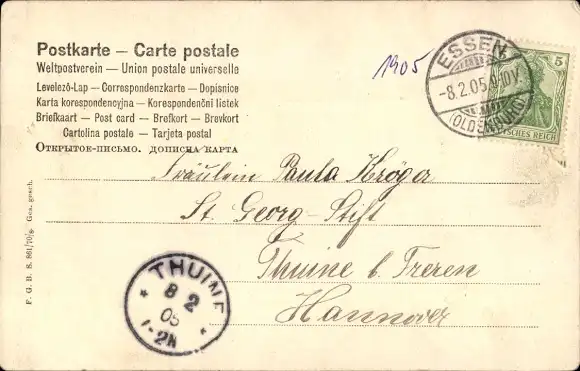 Postkarte – Carte postale
Weltpostverein – Union postale universelle
Levelező-Lap – Correspondenzkarte – Dopisnice
Karta korespondencyjna – Korespondenční listek
Briefkaart – Post card – Brefkort – Brevkort
Cartolina postale – Tarjeta postal
Открытое-письмо. дописна карта
1905
ESSEN
-8.2.05. 9-10V.
(OLDENBURG)
5
DEUTSCHES REICH
Fräulein Paula Kröger
St. Georg-Stift
Thuine b. Freren
Hannover
THUINE
8 2
05
1-2N
F. G. B. S. 861/70/8 Ges. gesch.